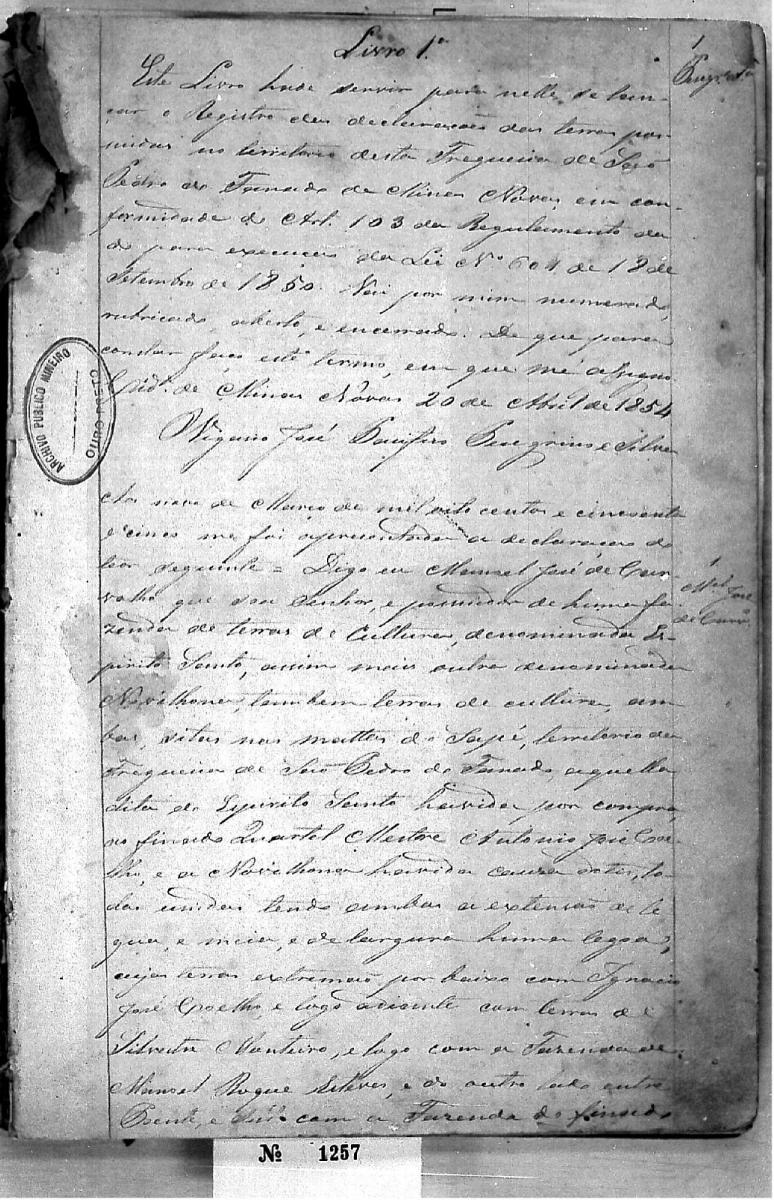 Livro 1º
1
Este Livro hade servir para nelle se lan-
çar o Registro das declarações das terras pos-
suidas no territorio desta Freguezia de São
Pedro do Fanado de Minas Novas, em con-
formidade do Art. 103 do Regulamento da-
do para execução da Lei Nº 601 de 18 de
Setembro de 1850. Vai por mim numerado,
rubricado, aberto, e encerrado. De que para
constar faço este termo, em que me assigno.
Cidᵉ. de Minas Novas 20 de Abril de 1854
Vigario José Pacifico Peregrino e Silva
ARCHIVO PUBLICO MINEIRO
OURO PRETO
Aos nove de Março de mil oito centos e cincoenta
e cinco me foi apresentada a declaração do
teor seguinte = Digo eu Manoel José de Car-
valho que sou Senhor, e possuidor de huma fa-
zenda de terras de Cultura, denominada Es-
pirito Santo, assim mais outra denominada
Novilhona, tambem terras de cultura, am-
bas, sitas nas mattas do Sapé, territorio da
Freguezia de São Pedro do Fanado, aquella
dita do Espirito Santo havida por compra,
no finado Quartel Mestre Antonio José Coe-
lho, e a Novilhona havida cauza dotes, to-
das unidas tendo ambas a extensão de le
goa, e meia, e de largura huma legoa,
cujas terras extremão por baixo com Ignacio
José Coelho, e logo adiante com terras de
Silvestre Monteiro, e logo com a Fazenda de
Manoel Roque Esteves, e do outro lado
e com a Fazenda do finado
1
Mᵉˡ José
de Carvº.
Nº 1257